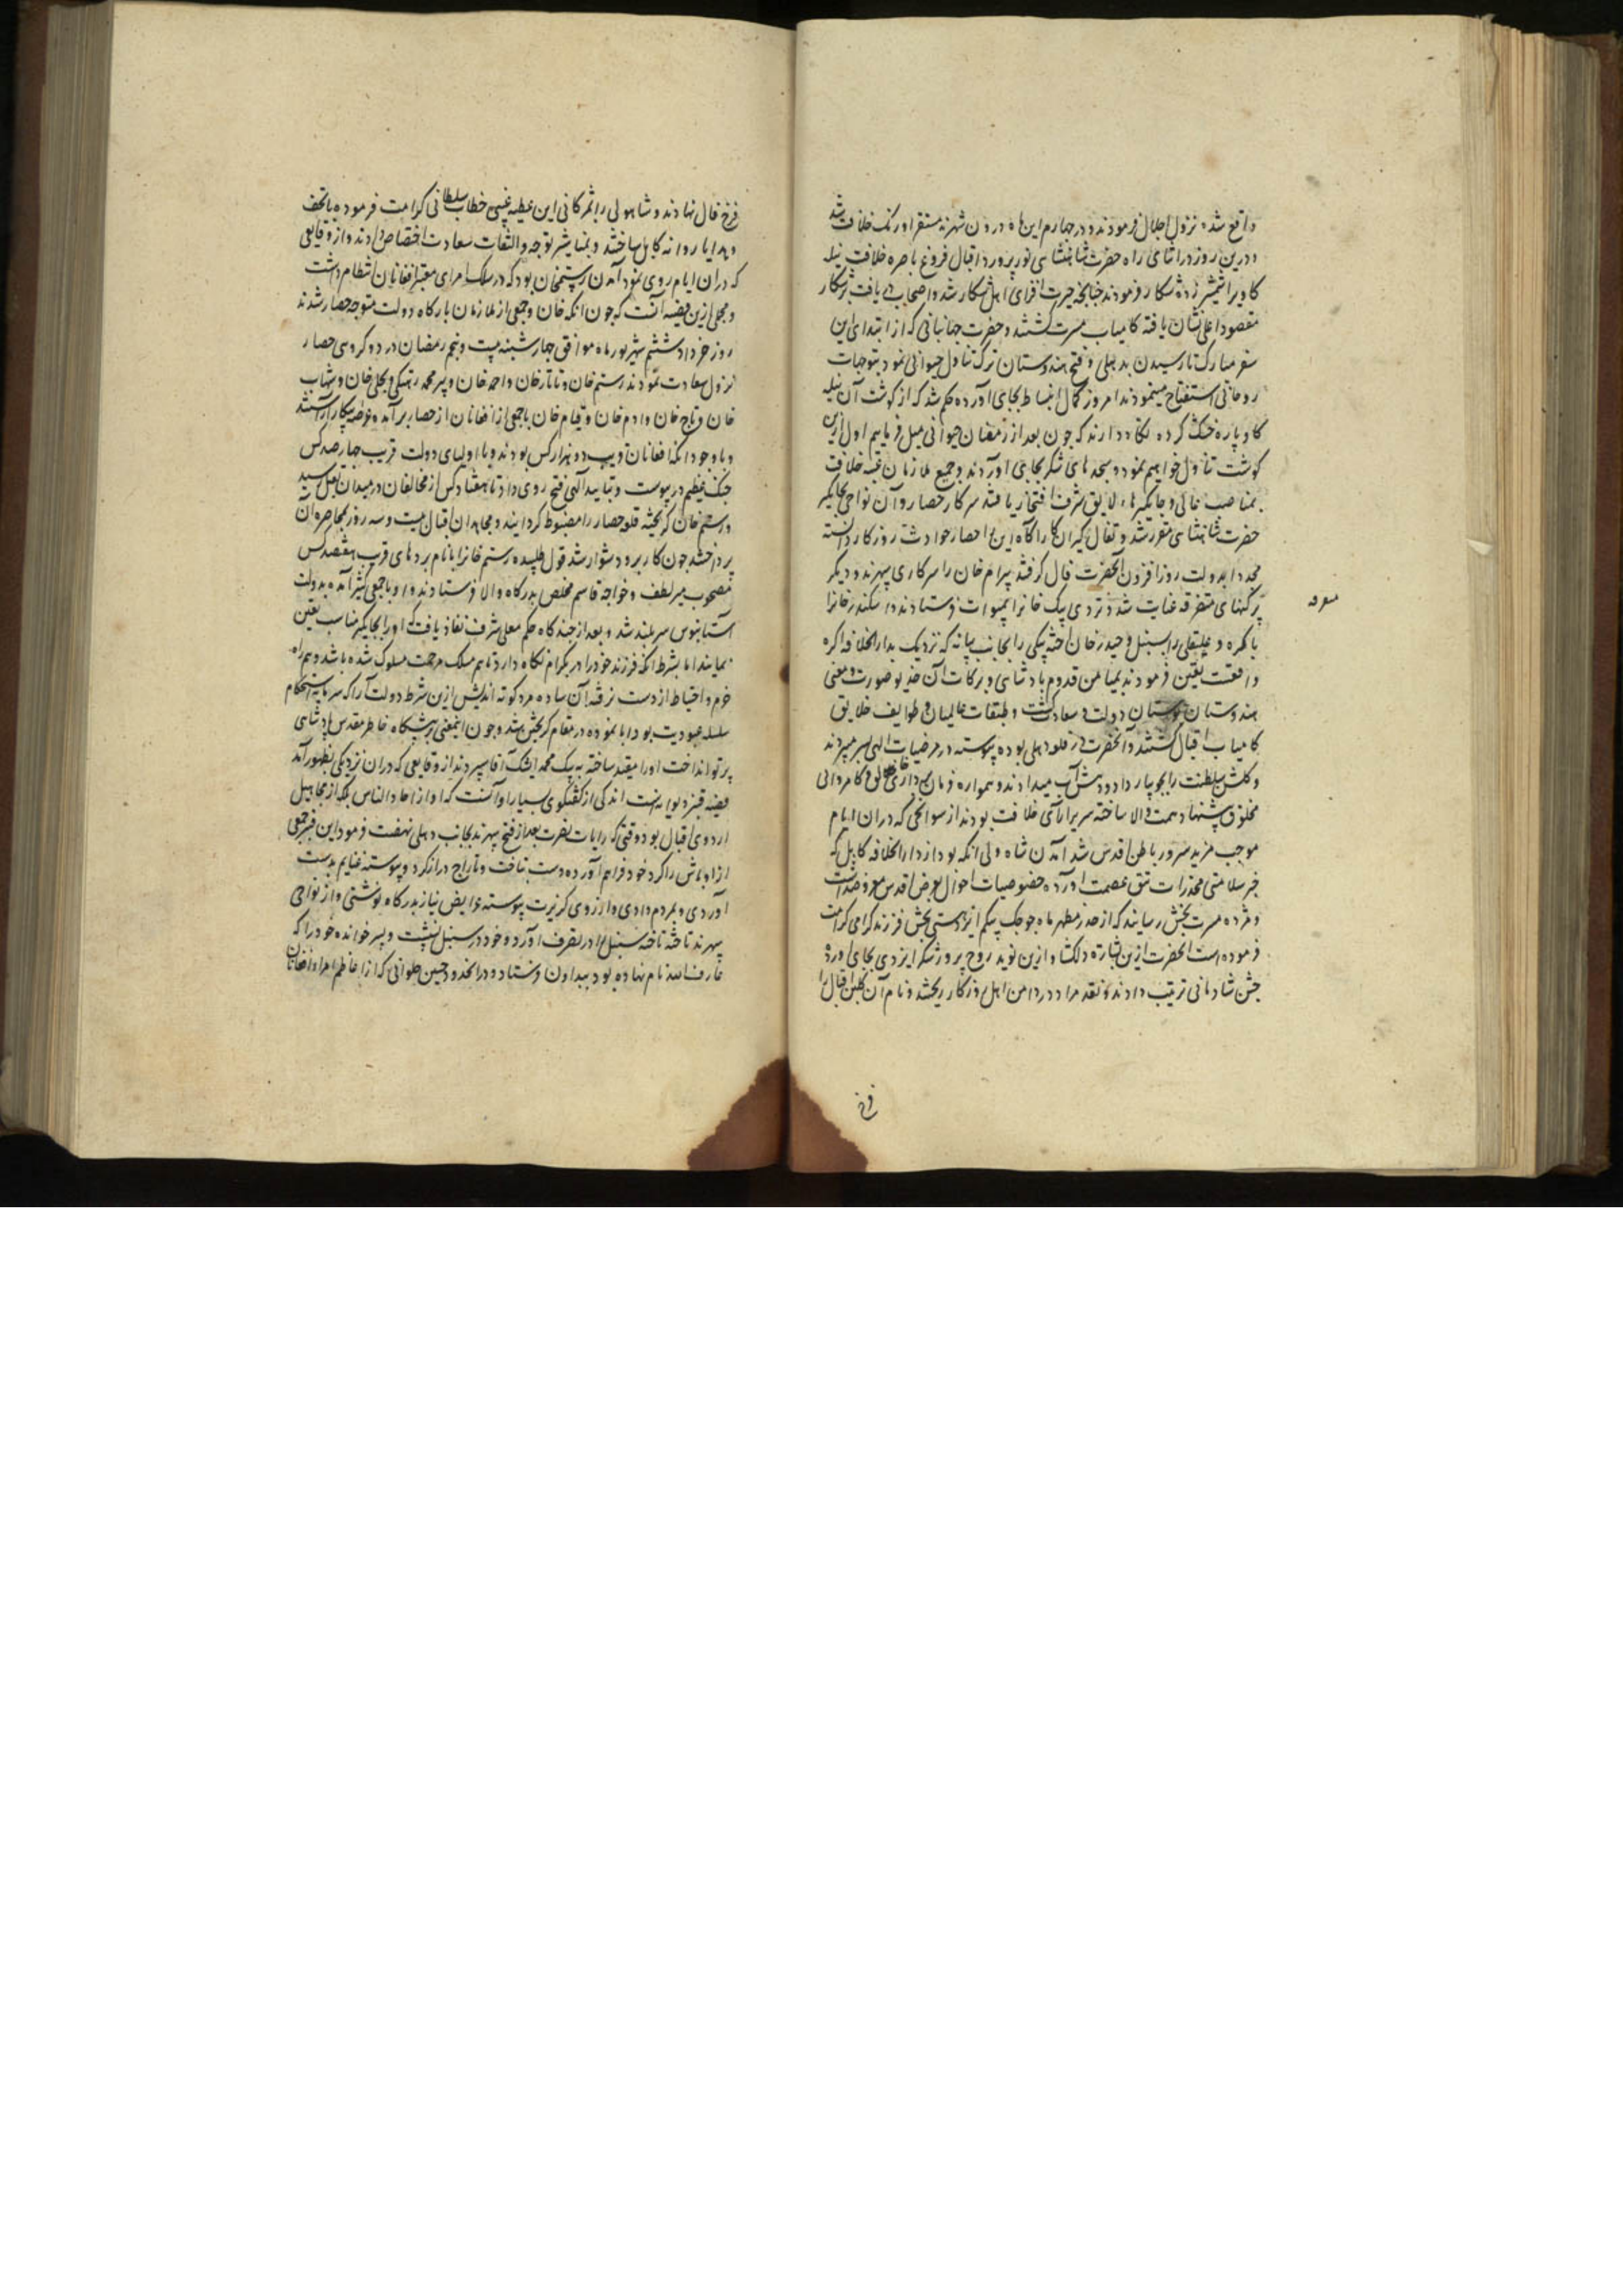 واقع شده نزول اجلال فرمودند و در چهارم این ماه درون شهر نه مستقر اورنگ خلافت شد
و درین روز در اثنای راه حضرت شاهنشاهی نورپرورد اقبال فروغ باصره خلافت نیله
کاویرا بشمشیر زده شکار فرمودند چنانچه حیرت افزای اهل شکار شد و اصحاب
مقصود اعلی نشان یافته کامیاب مسرت گشتند و حضرت جهانبانی که از ابتدای این
سفر مبارک تا رسیدن بدهلی و فتح هندوستان ترک تناول حیوانی نمود بتوجهات
روحانی استفتاح مینمودند امروز کمال انبساط بجای آورده حکم شد که از گوشت آن نیله
کاو پاره خشک کرده نگاه دارند که چون بعد از رمضان حیوانی میل فرماییم اول ازین
گوشت تناول خواهیم نمود و سجدهای شکر بجای آوردند و جمیع ملازمان عتبه خلافت
بمناصب عالی و جایگیرهاء لایق شرف افتخار یافتند سرکار حصار و آن نواحی بجایگیر
حضرت شاهنشاهی مقرر شد و تفال گیران کارآگاه این را حصار حوادث روزگار دانسته
مجددا بدولت روزافزون آنحضرت فال گرفتند بیرام خان را سرکاری سهرند و دیگر
پرگنهای متفرقه عنایت شد و تردی بیک خانرا بمیوات فرستادند و اسکندر خانرا
باگره و علیقلی را بسنبل و حیدر خان اخته بیکی را بجانب بیانه که نزدیک بدار الخلافه اگره
واقعست تعین فرمودند بمیامن قدوم پادشاهی و برکات آن خدیو صورت و معنی
هندوستان بوستان دولت و سعادت گشت و طبقات عالمیان و طوایف خلایق
کامیاب اقبال گشتند و آنحضرت در قلعه دهلی بوده پیوسته در مرضیات الهی بسر میبردند
و گلشن سلطنت را بجویبار داد و دهش آب میدادند و همواره فرمان برداری خالق و کامروائی
مخلوق پیشنهاد همت والا ساخته سریر آرای خلافت بودند از سوانحی که در ان ایام
موجب مزید سرور باطن اقدس شد آمدن شاه ولی اتکه بود از دار الخلافه کابل که
خبر سلامتی مخدرات تتق عصمت آورده خصوصیات احوال بعرض اقدس معروضداشت
و مژده مسرت بخش رسانید که از صدر مطهر ماه جوجک بیگم ایزد هستی بخش فرزند گرامی کرامت
فرموده است آنحضرت ازین بشارت دلگشا و ازین نوید روح پرور شکر ایزدی بجای آورده
جشن شادمانی ترتیب دادند و نقد مراد در دامن اهل روزگار ریختند و نام آن گلبن اقبال را
فرخ
فرخ فال نهادند و شاه ولی را بمژدگانی این عطیه غیبی خطاب سلطانی کرامت فرموده با تحف
و هدایا روانه کابل ساختند و بمناشیر توجه و التفات سعادت اختصاص دادند و از وقایعی
که در ان ایام روی نمود آمدن رستمخان بود که در سلک امرای معتبر افغانان انتظام داشت
و مجملی ازین قضیه آنست که چون اتکه خان و جمعی از ملازمان بارگاه دولت متوجه حصار شدند
روز خرداد ششم شهریور ماه موافق چهارشنبه بیست و پنجم رمضان در دو کروهی حصار
نزول سعادت نمودند رستم خان و تاتار خان و احمد خان و پیر محمد رهتکی و بجلی خان و شهاب
خان و تاج خان و ادم خان و قیام خان با جمعی از افغانان از حصار برآمده عرصه پیکار آراستند
و با وجود آنکه افغانان قریب دو هزار کس بودند و با اولیای دولت قریب چارصد کس
جنگ عظیم در پیوست و بتایید الهی فتح روی داد تا هفتاد کس از مخالفان در میدان بقتل رسید
و رستم خان گریخته قلعه حصار را مضبوط گردانید و مجاهدان اقبال بیست و سه روز بمحاصره آن
پرداختند چون کار برو دشوار شد قول طلبیده رستم خانرا با نام بردهای قرب هفتصد کس
مصحوب میر لطف و خواجه قاسم مخلص بدرگاه والا فرستادند و او با جمعی کثیر آمده بدولت
آستانبوس سربلند شد و بعد از چند گاه حکم معلی شرف نفاذ یافت که او را بجایگیر مناسب تعین
نمایند اما بشرط آنکه فرزند خود را در بگرام نگاه دارد تا هم مسلک مرحمت مسلوک شده باشد و هم راه
حزم و احتیاط از دست نرفته آن ساده مرد کوته اندیش ازین شرط دولت آرا که سرمایه استحکام
سلسله عبودیت بود ابا نموده در مقام گریختن شد و چون اینمعنی بر پیشگاه خاطر مقدس پادشاهی
پرتو انداخت او را مقید ساخته به بیک محمد ایشک آقا سپردند از وقایعی که دران نزدیکی بظهور آمد
قضیه قنبر دیوانه است اندکی از گفتگوی بسیار او آنست که او از احاد الناس بلکه از مجاهیل
اردوی اقبال بود وقتی که رایات نصرت بعد از فتح سهرند بجانب دهلی نهضت فرمود این قنبر جمعی
از اوباش را گرد خود فراهم آورده دست بتاخت و تاراج دراز کرد و پیوسته غنایم بدست
آوردی و بمردم دادی و از روی گربزت پیوسته عرایض نیاز بدرگاه نوشتی و از نواحی
سهرند تاخته تاخته سنبل را در تصرف آورد و خود در سنبل نشست و پسر خوانده خود را که
عارف الله نام نهاده بود ببداون فرستاد و در انحدود حسین جلوانی که از اعاظم امراء افغانان